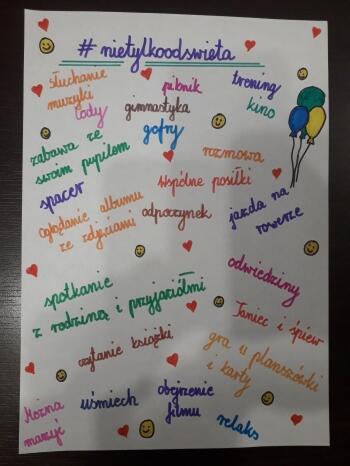 # nietylkoodświęta
słuchanie
muzyki
piknik
trening
lody
gimnastyka
kino
zabawa ze
swoim pupilem
gofry
rozmowa
spacer
Wspólne posiłki
oglądanie albumu
ze zdjęciami
odpoczynek
jazda na
rowerze
odwiedziny
spotkanie
z rodziną i przyjaciółmi
Taniec i śpiew
czytanie książki
gra w planszówki
i karty
uśmiech
obejrzenie
filmu
relaks